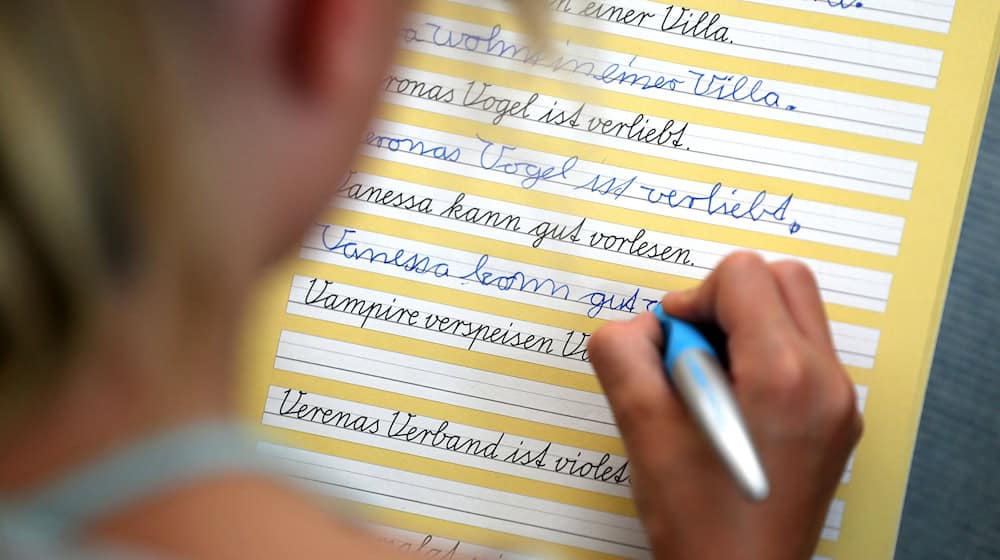 einer Villa.
wohnt in einer Villa.
Vogel ist verliebt.
Vogel ist verliebt.
Vanessa kann gut vorlesen.
Vanessa kann gut
Vampire verspeisen
Verenas Verband ist violett